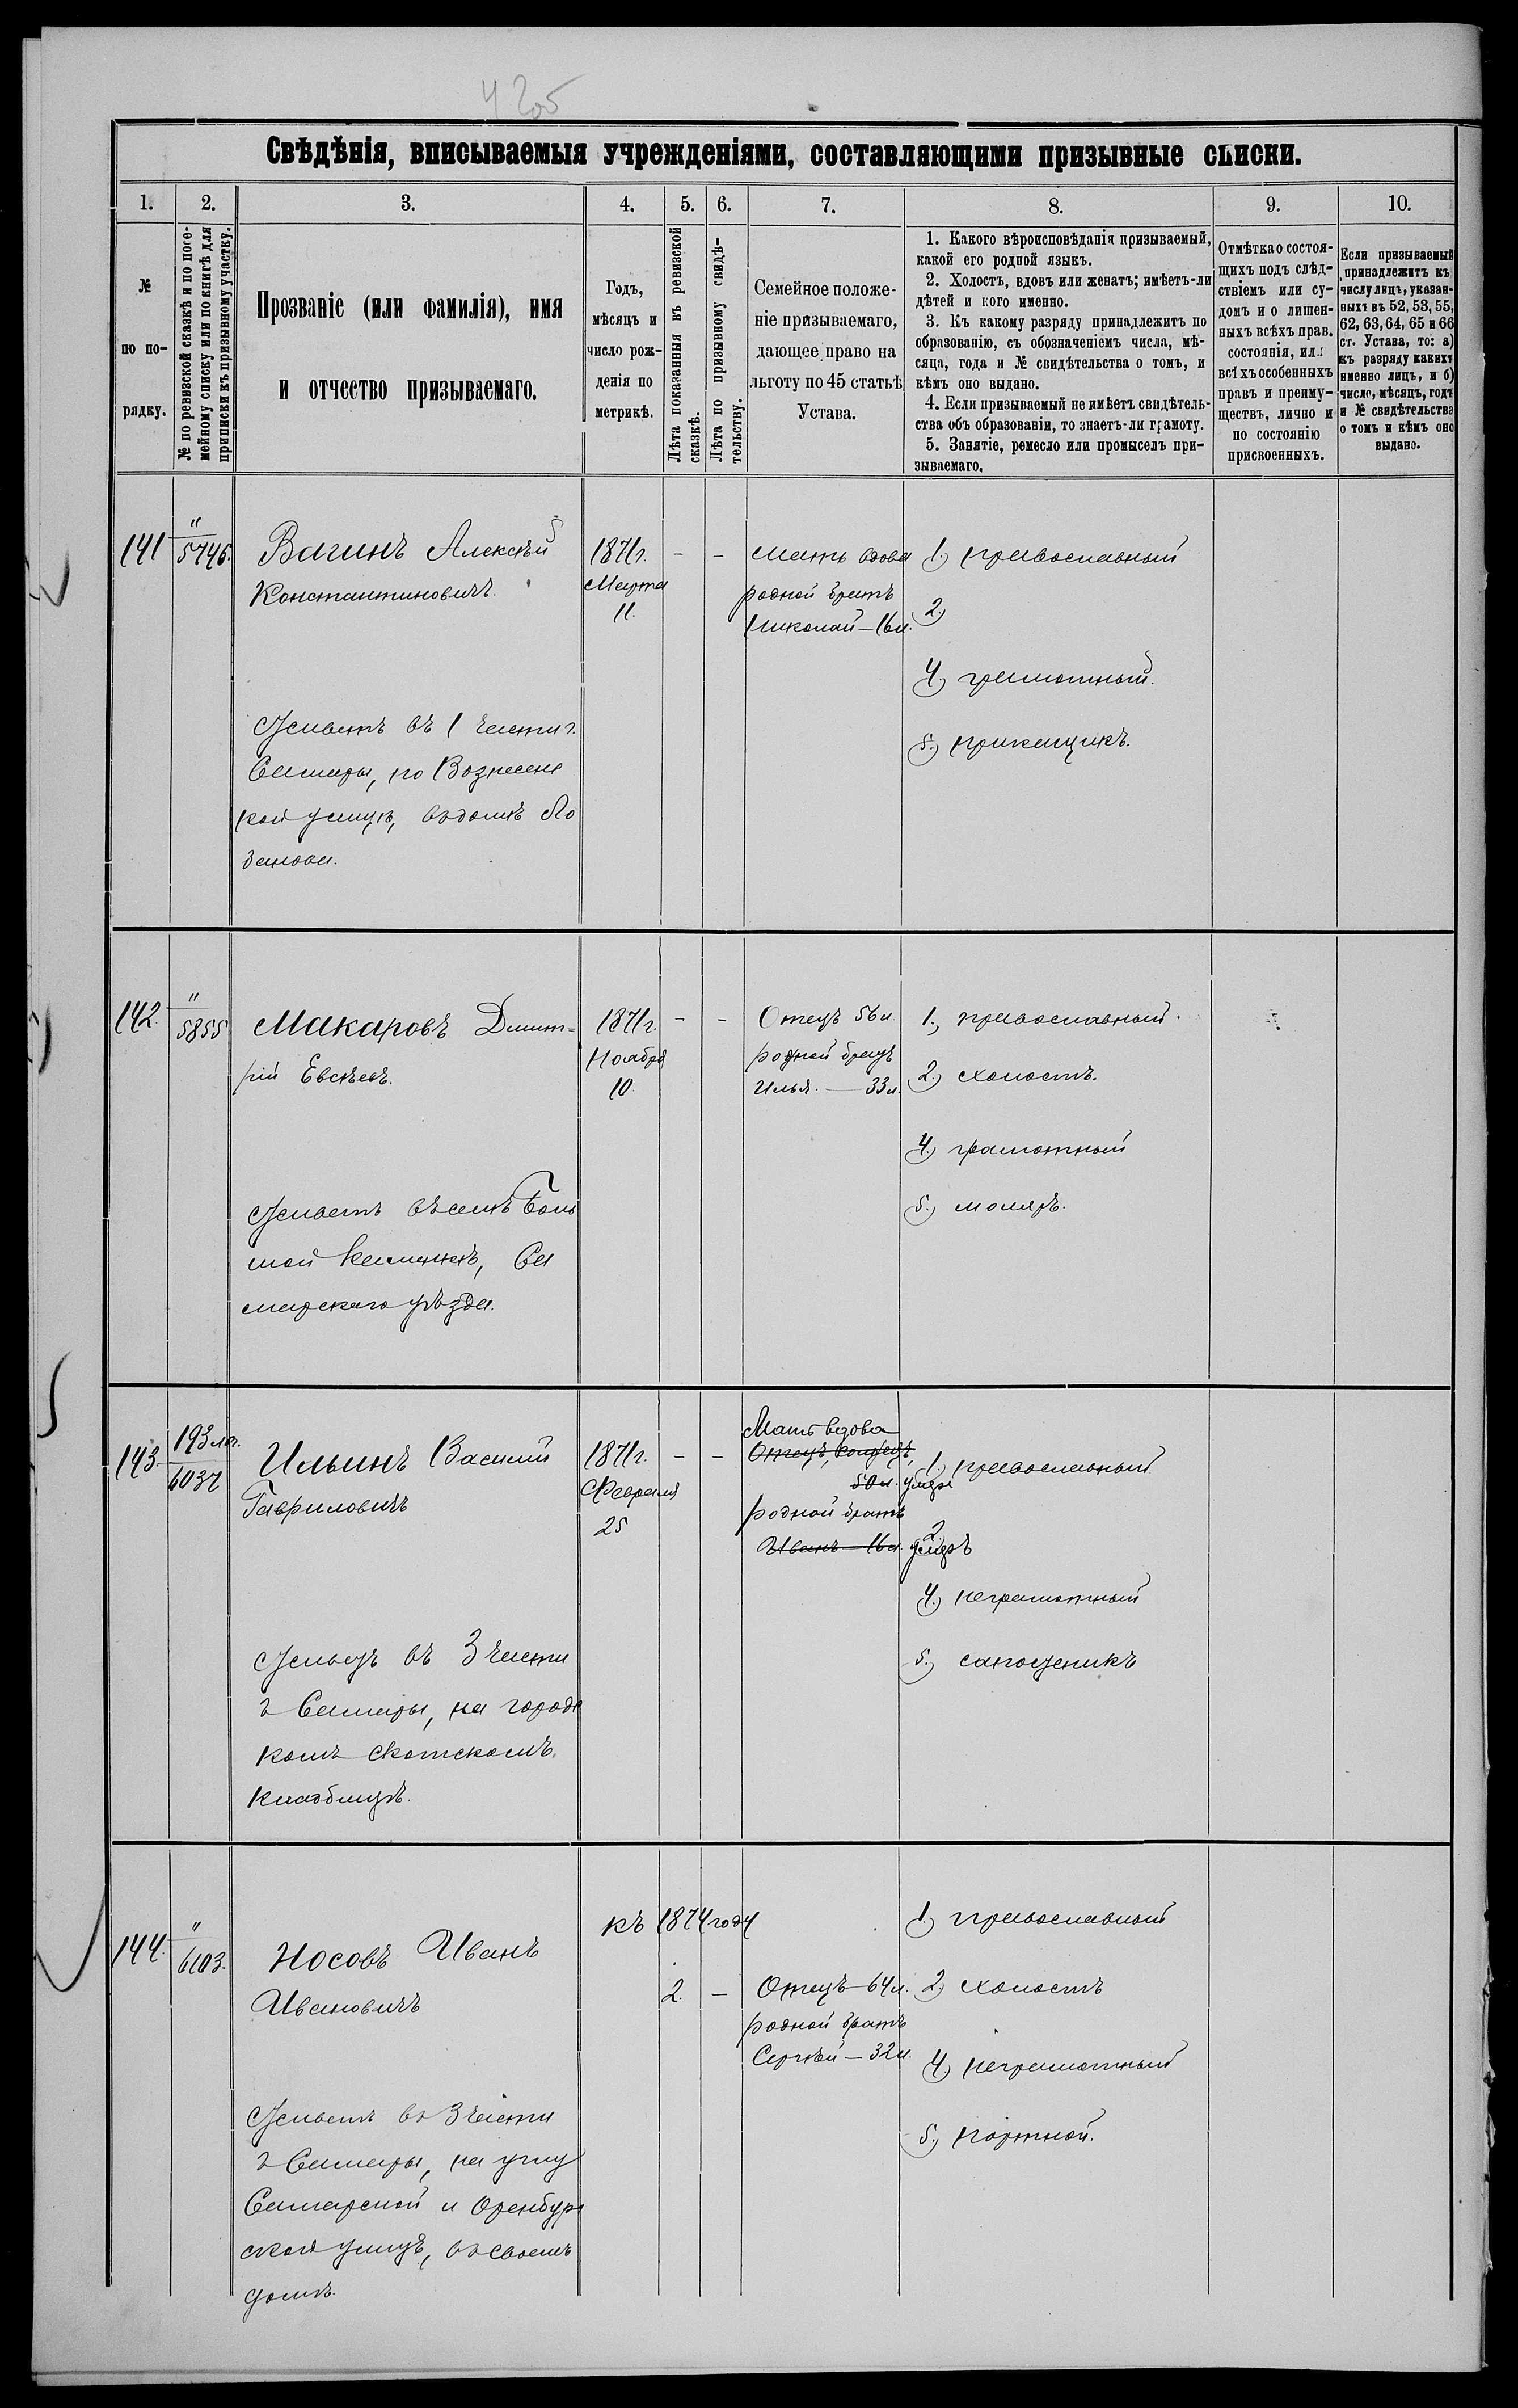 4 205
Свѣдѣнія, вписываемыя учрежденіями, составляющими призывные списки.
1.
2.
3.
4.
5.
6.
7.
8.
9.
10.
№
по по-
рядку.
№ по ревизской сказкѣ и по посе-
мейному списку или по книгѣ для
приписки къ призывному участку.
Прозваніе (или фамилія), имя
и отчество призываемаго.
Годъ,
мѣсяцъ и
число рож-
денія по
метрикѣ.
Лѣта показанныя въ ревизской
сказкѣ.
Лѣта по призывному свидѣ-
тельству.
Семейное положе-
ніе призываемаго,
дающее право на
льготу по 45 статьѣ
Устава.
1. Какого вѣроисповѣданія призываемый,
какой его родной языкъ.
2. Холостъ, вдовъ или женатъ; имѣетъ-ли
дѣтей и кого именно.
3. Къ какому разряду принадлежитъ по
образованію, съ обозначеніемъ числа, мѣ-
сяца, года и № свидѣтельства о томъ, и
кѣмъ оно выдано.
4. Если призываемый не имѣетъ свидѣтель-
ства объ образованіи, то знаетъ-ли грамоту.
5. Занятіе, ремесло или промыселъ при-
зываемаго.
Отмѣтка о состоя-
щихъ подъ слѣд-
ствіемъ или су-
домъ и о лишен-
ныхъ всѣхъ прав.
состоянія, или
всѣхъ особенныхъ
правъ и преиму-
ществъ, лично и
по состоянію
присвоенныхъ.
Если призываемый
принадлежитъ къ
числу лицъ, указан-
ныхъ въ 52, 53, 55,
62, 63, 64, 65 и 66
ст. Устава, то: а)
къ разряду какихъ
именно лицъ, и б)
число, мѣсяцъ, годъ
и № свидѣтельства
о томъ и кѣмъ оно
выдано.
141
"
5746.
Вагинъ Алексѣй
Константиновичъ.
1871г.
Марта
11.
-
-
Мать вдова
родной братъ
Николай—16л.
1.) православный
2.)
4.) грамотный.
5.) прикащикъ.
Живетъ въ 1 части г.
Самары, по Вознесен
кой улицѣ, въ домѣ Ло
занова.
142.
"
5855
Макаровъ Дмит=
рій Евсѣевъ.
1871г.
Ноября
10.
-
-
Отецъ 56л.
родной братъ
Илья.—33л.
1.) православный.
2.) холостъ.
4.) грамотный
5.) моляръ.
Живетъ въ селѣ Боль
шой Каменкѣ, Са
марскаго уѣзда.
143.
193
6037
Ильинъ Василій
Гавриловичъ
1871г.
Февраля
25
-
-
Мать вдова
Отецъ,
50л. умеръ
родной братъ
Иванъ—16л. умеръ
1.) православный
2.
4.) неграмотный
5.) сапожникъ
Живетъ въ 3 части
г Самары, на городс
комъ скотскомъ
кладбищѣ.
144.
"
6103.
Носовъ Иванъ
Ивановичъ
къ 1874 году
2.
—
Отецъ—64л.
родной братъ
Сергѣй—32л.
1.) православный
2.) холостъ
4.) неграмотный
5.) портной.
Живетъ въ 3 части
г Самары, на углу
Самарской и Оренбург
ской улицъ, въ своемъ
домѣ.